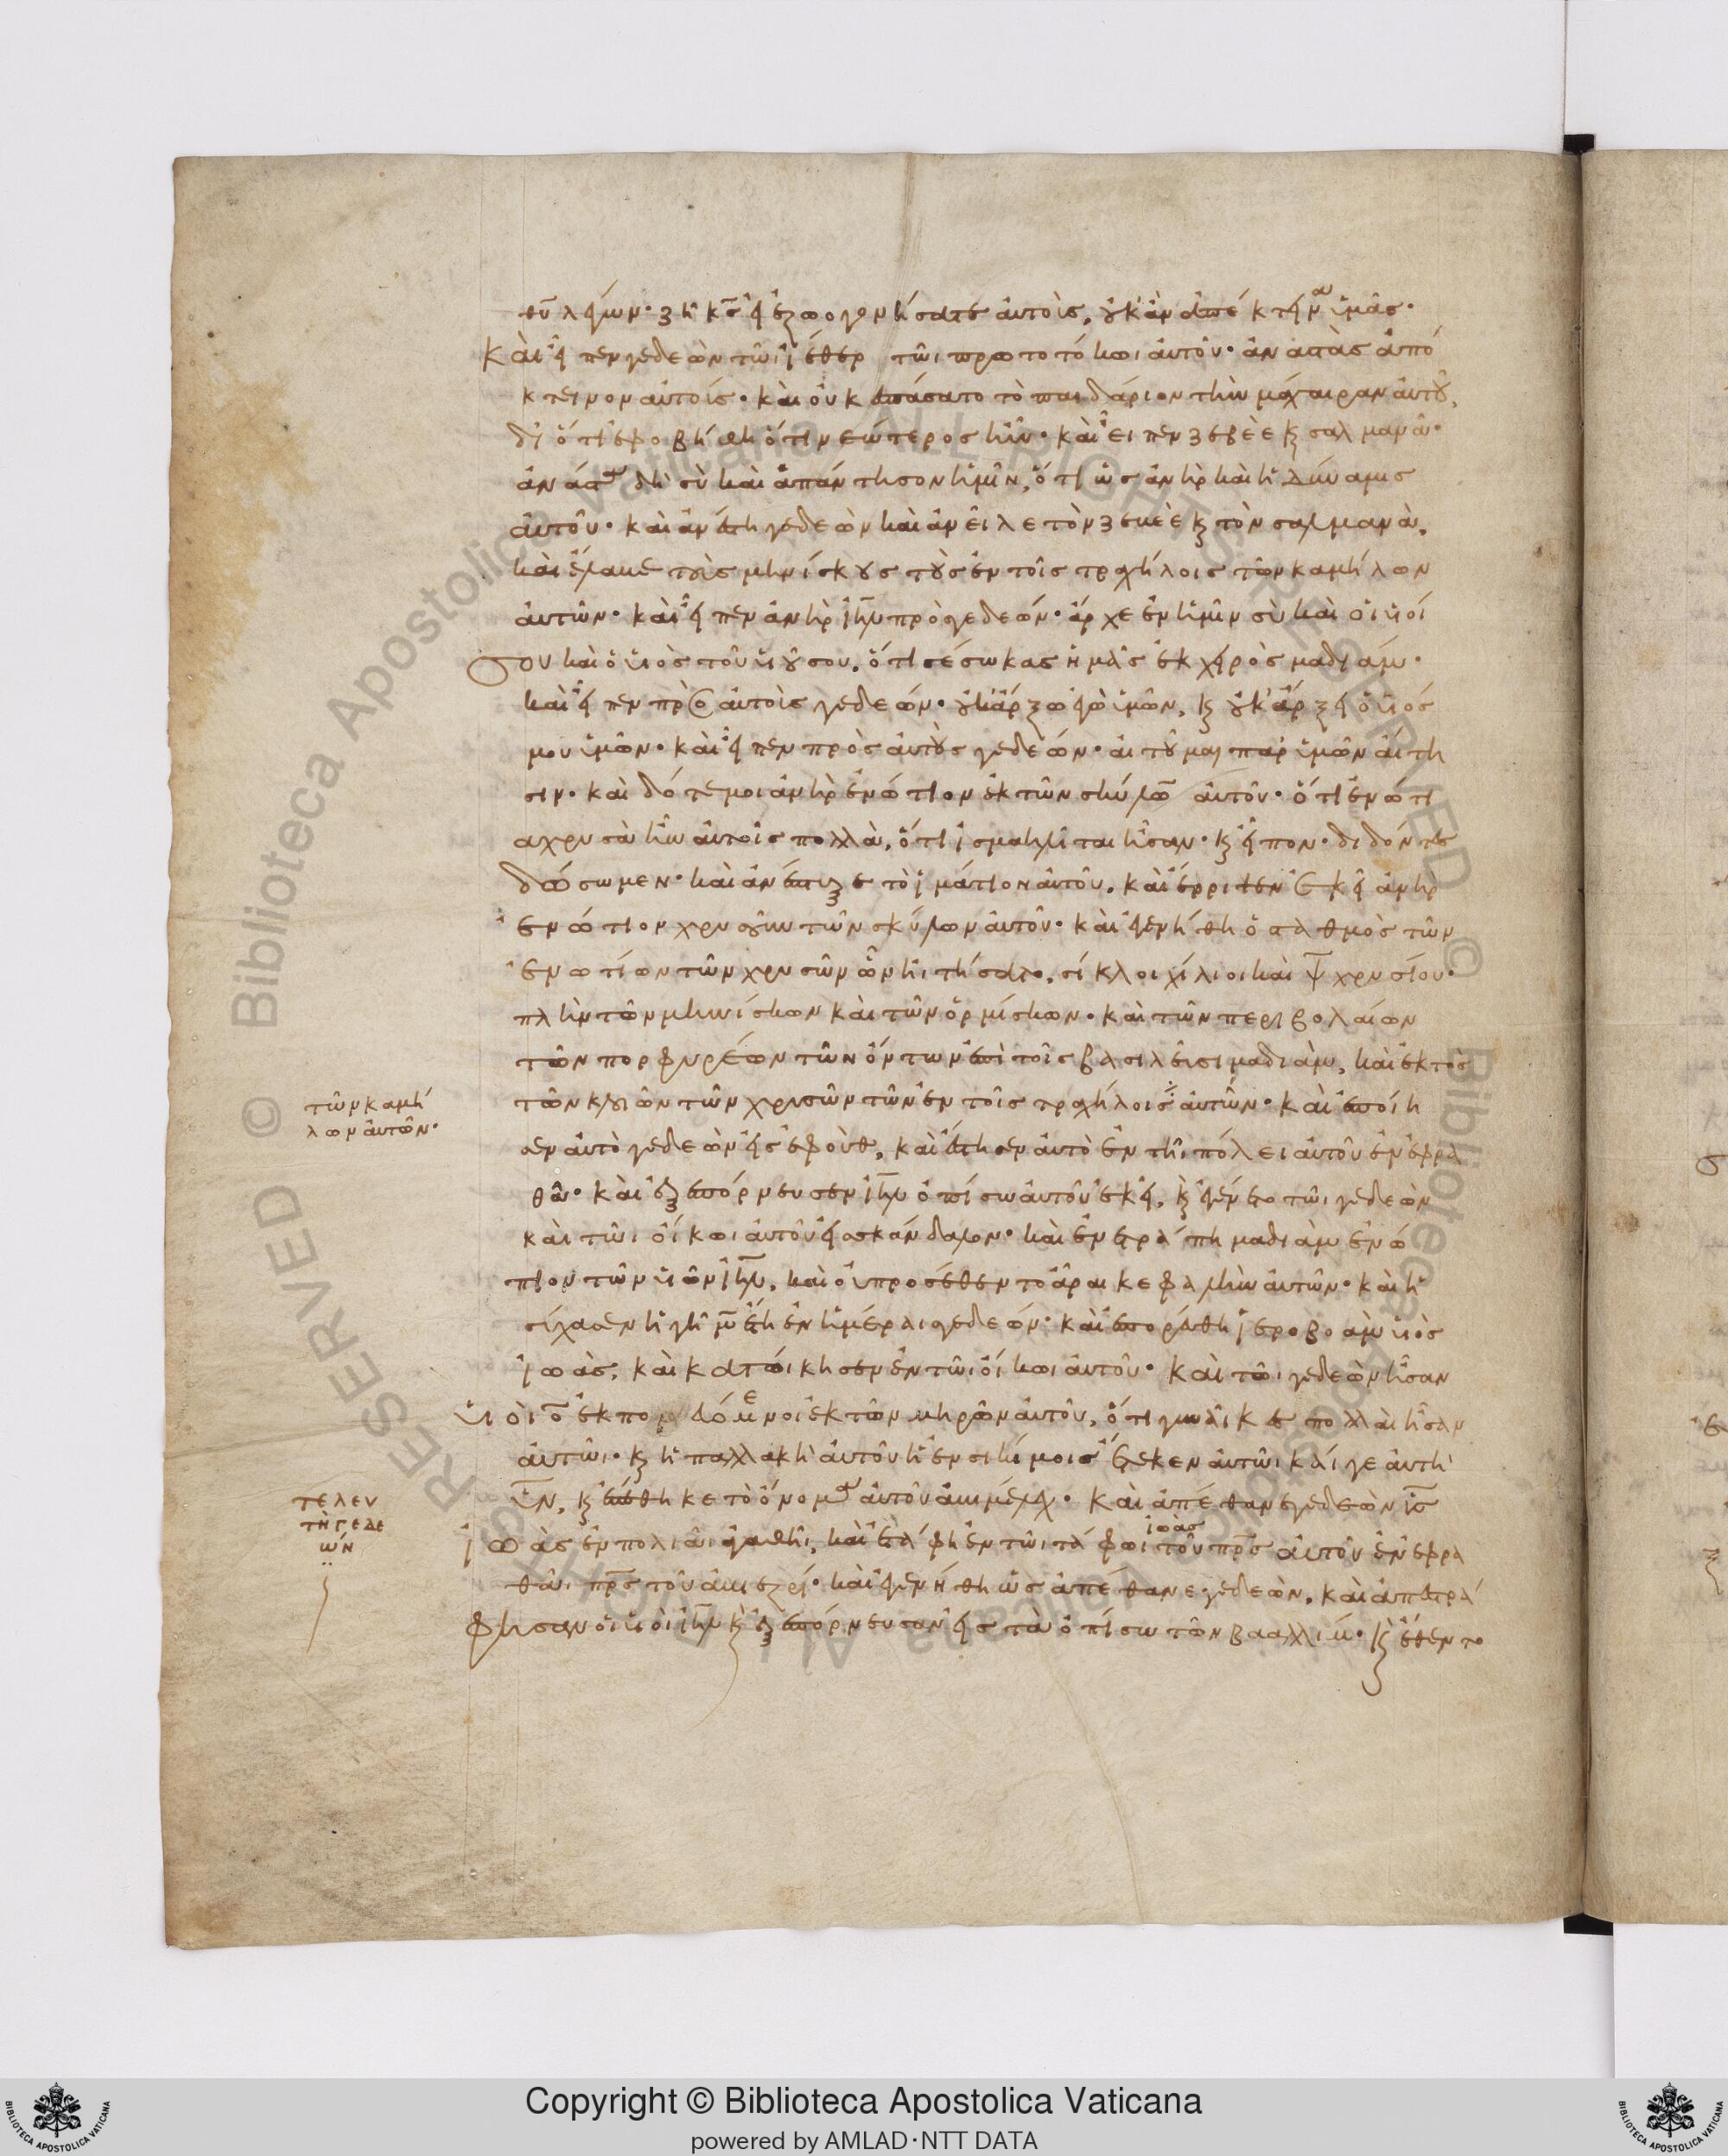 θυ λείων· ζῆ κς εἰ ἐζωογονήσατε αὐτοὺς, οὐκ ἂν ἀπέκτεινα ὑμᾶς·
Καὶ εἶπεν γεδεὼν τῶι ἰέθερ τῶι πρωτοτόκωι αὐτοῦ· ἀναστὰς ἀπό
κτεινον αὐτούς· καὶ οὐκ ἐσπάσατο τὸ παιδάριον τὴν μάχαιραν αὐτοῦ,
διότι ἐφοβήθη ὅτι νεώτερος ἦν· καὶ εἶπεν ζεβεὲ κ σαλμανᾶ·
ἀνάστα δὴ σὺ καὶ ἀπάντησον ἡμῖν, ὅτι ὡς ἀνὴρ καὶ ἡ δύναμις
αὐτοῦ· καὶ ἀνέστη γεδεὼν καὶ ἀνεῖλε τὸν ζεβεὲ κ τὸν σαλμανὰ,
καὶ ἔλαβε τοὺς μηνίσκους τοὺς ἐν τοῖς τραχήλοις τῶν καμήλων
αὐτῶν· καὶ εἶπεν ἀνὴρ ιηλ πρὸ γεδεών· ἄρχε ἐν ἡμῖν σὺ καὶ οἱ υἱοί
σου καὶ ὁ υἱὸς τοῦ υἱοῦ σου, ὅτι σέσωκας ἡμᾶς ἐκ χειρὸς μαδιάμ·
καὶ εἶπεν πρὸς αὐτοὺς γεδεών· οὐκ ἄρξω ἐγὼ ὑμῶν, κ οὐκ ἄρξει ὁ υἱός
μου ὑμῶν· καὶ εἶπεν πρὸς αὐτοὺς γεδεών· αἰτοῦμαι παρ ὑμῶν αἴτη
σιν· καὶ δότε μοι ἀνὴρ ἐνώτιον ἐκ τῶν σκύλω αὐτοῦ· ὅτι ἐνώτι
α χρυσὰ ἦν αὐτοῖς πολλὰ, ὅτι ἰσμαηλῖται ἦσαν· κ εἶπον· διδόντες
δώσωμεν· καὶ ἀνέπτυξε τὸ ἱμάτιον αὐτοῦ, καὶ ἔρριψεν ἐκεῖ ἀνὴρ
ἐνώτιον χρυσοῦν τῶν σκύλων αὐτοῦ· καὶ ἐγενήθη ὁ σταθμὸς τῶν
ἐνωτίων τῶν χρυσῶν ὧν ἠιτήσατο, σίκλοι χίλιοι καὶ ψ χρυσίου·
πλὴν τῶν μηνίσκων καὶ τῶν ὁρμίσκων· καὶ τῶν περιβολαίων
τῶν πορφυρέων τῶν ὄντων ἐπὶ τοῖς βασιλεῦσι μαδιὰμ, καὶ ἐκτὸς
τῶν κλοιῶν τῶν χρυσῶν τῶν ἐν τοῖς τραχήλοις αὐτῶν· καὶ ἐποίη
τῶν καμή
λων αὐτῶν·
σεν αὐτὸ γεδεὼν εἰς ἐφοὺθ, καὶ ἔστησεν αὐτὸ ἐν τῆι πόλει αὐτοῦ ἐν ἐφρα
θᾶ· καὶ ἐξεπόρνευσεν ιηλ ὀπίσω αὐτοῦ ἐκεῖ, κ ἐγένετο τῶι γεδεὼν
καὶ τῶι οἴκωι αὐτοῦ εἰς σκάνδαλον· καὶ ἐνετράπη μαδιὰμ ἐνώ
πιον τῶν υἱῶν ιηλ, καὶ οὐ προσέθεντο ἆραι κεφαλὴν αὐτῶν· καὶ ἡ
σύχασεν ἡ γῆ μ ἔτη ἐν ἡμέραι γεδεών· καὶ ἐπορεύθη ἱεροβοὰμ υἱὸς
ἰωὰς, καὶ κατώικησεν ἐν τῶι οἴκωι αὐτοῦ· καὶ τῶι γεδεὼν ἦσαν
υἱοὶ ο ἐκπορευόμενοι ἐκ τῶν μηρῶν αὐτοῦ, ὅτι γυναῖκες πολλαὶ ἦσαν
αὐτῶι· κ ἡ παλλακὴ αὐτοῦ ἡ ἐν σικήμοις ἔτεκεν αὐτῶι καί γε αὐτὴ
υν, κ ἐπέθηκε τὸ ὄνομα αὐτοῦ ἀβιμέλεχ· καὶ ἀπέθανε γεδεὼν υς
τελευ
τὴ γεδε
ών
ἰωὰς ἐν πολιᾶι ἀγαθῆι, καὶ ἐτάφη ἐν τῶι τάφωι ἰωὰς τοῦ πρς αὐτοῦ ἐν ἐφρα
θᾶι πρς τοῦ ἀβιεζρεί· καὶ ἐγενήθη ὡς ἀπέθανε γεδεὼν, καὶ ἀπεστρά
φησαν οἱ υἱοὶ ιηλ κ ἐξεπόρνευσαν εἰς τὰ ὀπίσω τῶν βααλλίμ· κ ἔθεντο
Copyright © Biblioteca Apostolica Vaticana
powered by AMLAD·NTT DATA